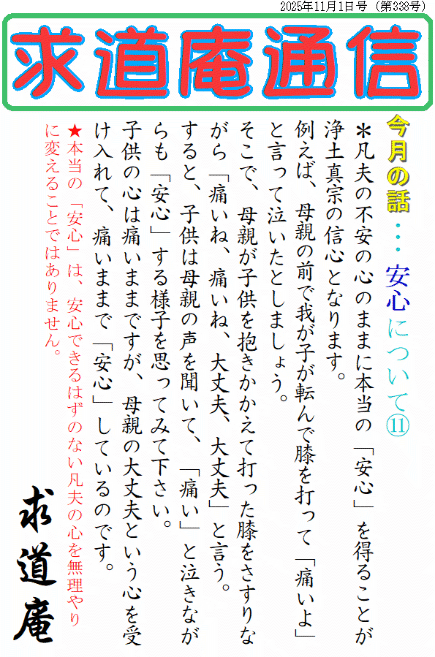 2025年11月1日号（第338号）
求道庵通信
今月の話…安心について⑪
＊凡夫の不安の心のままに本当の「安心」を得ることが
浄土真宗の信心となります。
例えば、母親の前で我が子が転んで膝を打って「痛いよ」
と言って泣いたとしましょう。
そこで、母親が子供を抱きかかえて打った膝をさすりな
がら「痛いね、痛いね、大丈夫、大丈夫」と言う。
すると、子供は母親の声を聞いて、「痛い」と泣きなが
らも「安心」する様子を思ってみて下さい。
子供の心は痛いままですが、母親の大丈夫という心を受
け入れて、痛いままで「安心」しているのです。
★本当の「安心」は、安心できるはずのない凡夫の心を無理やり
に変えることではありません。
求道庵